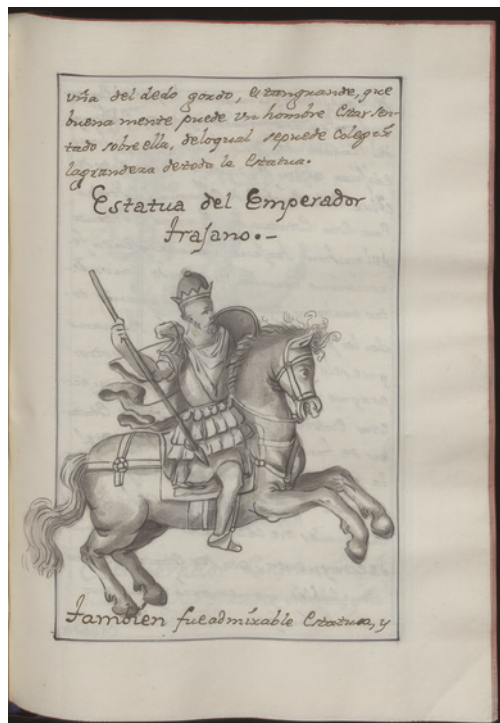 uña del dedo gordo, es tan grande, que
buena mente puede un hombre estar sen-
tado sobre ella, delo qual se puede colegir
la grandeza de toda la estatua.
Estatua del Emperador
trajano.-
tambien fue admirable estatua, y